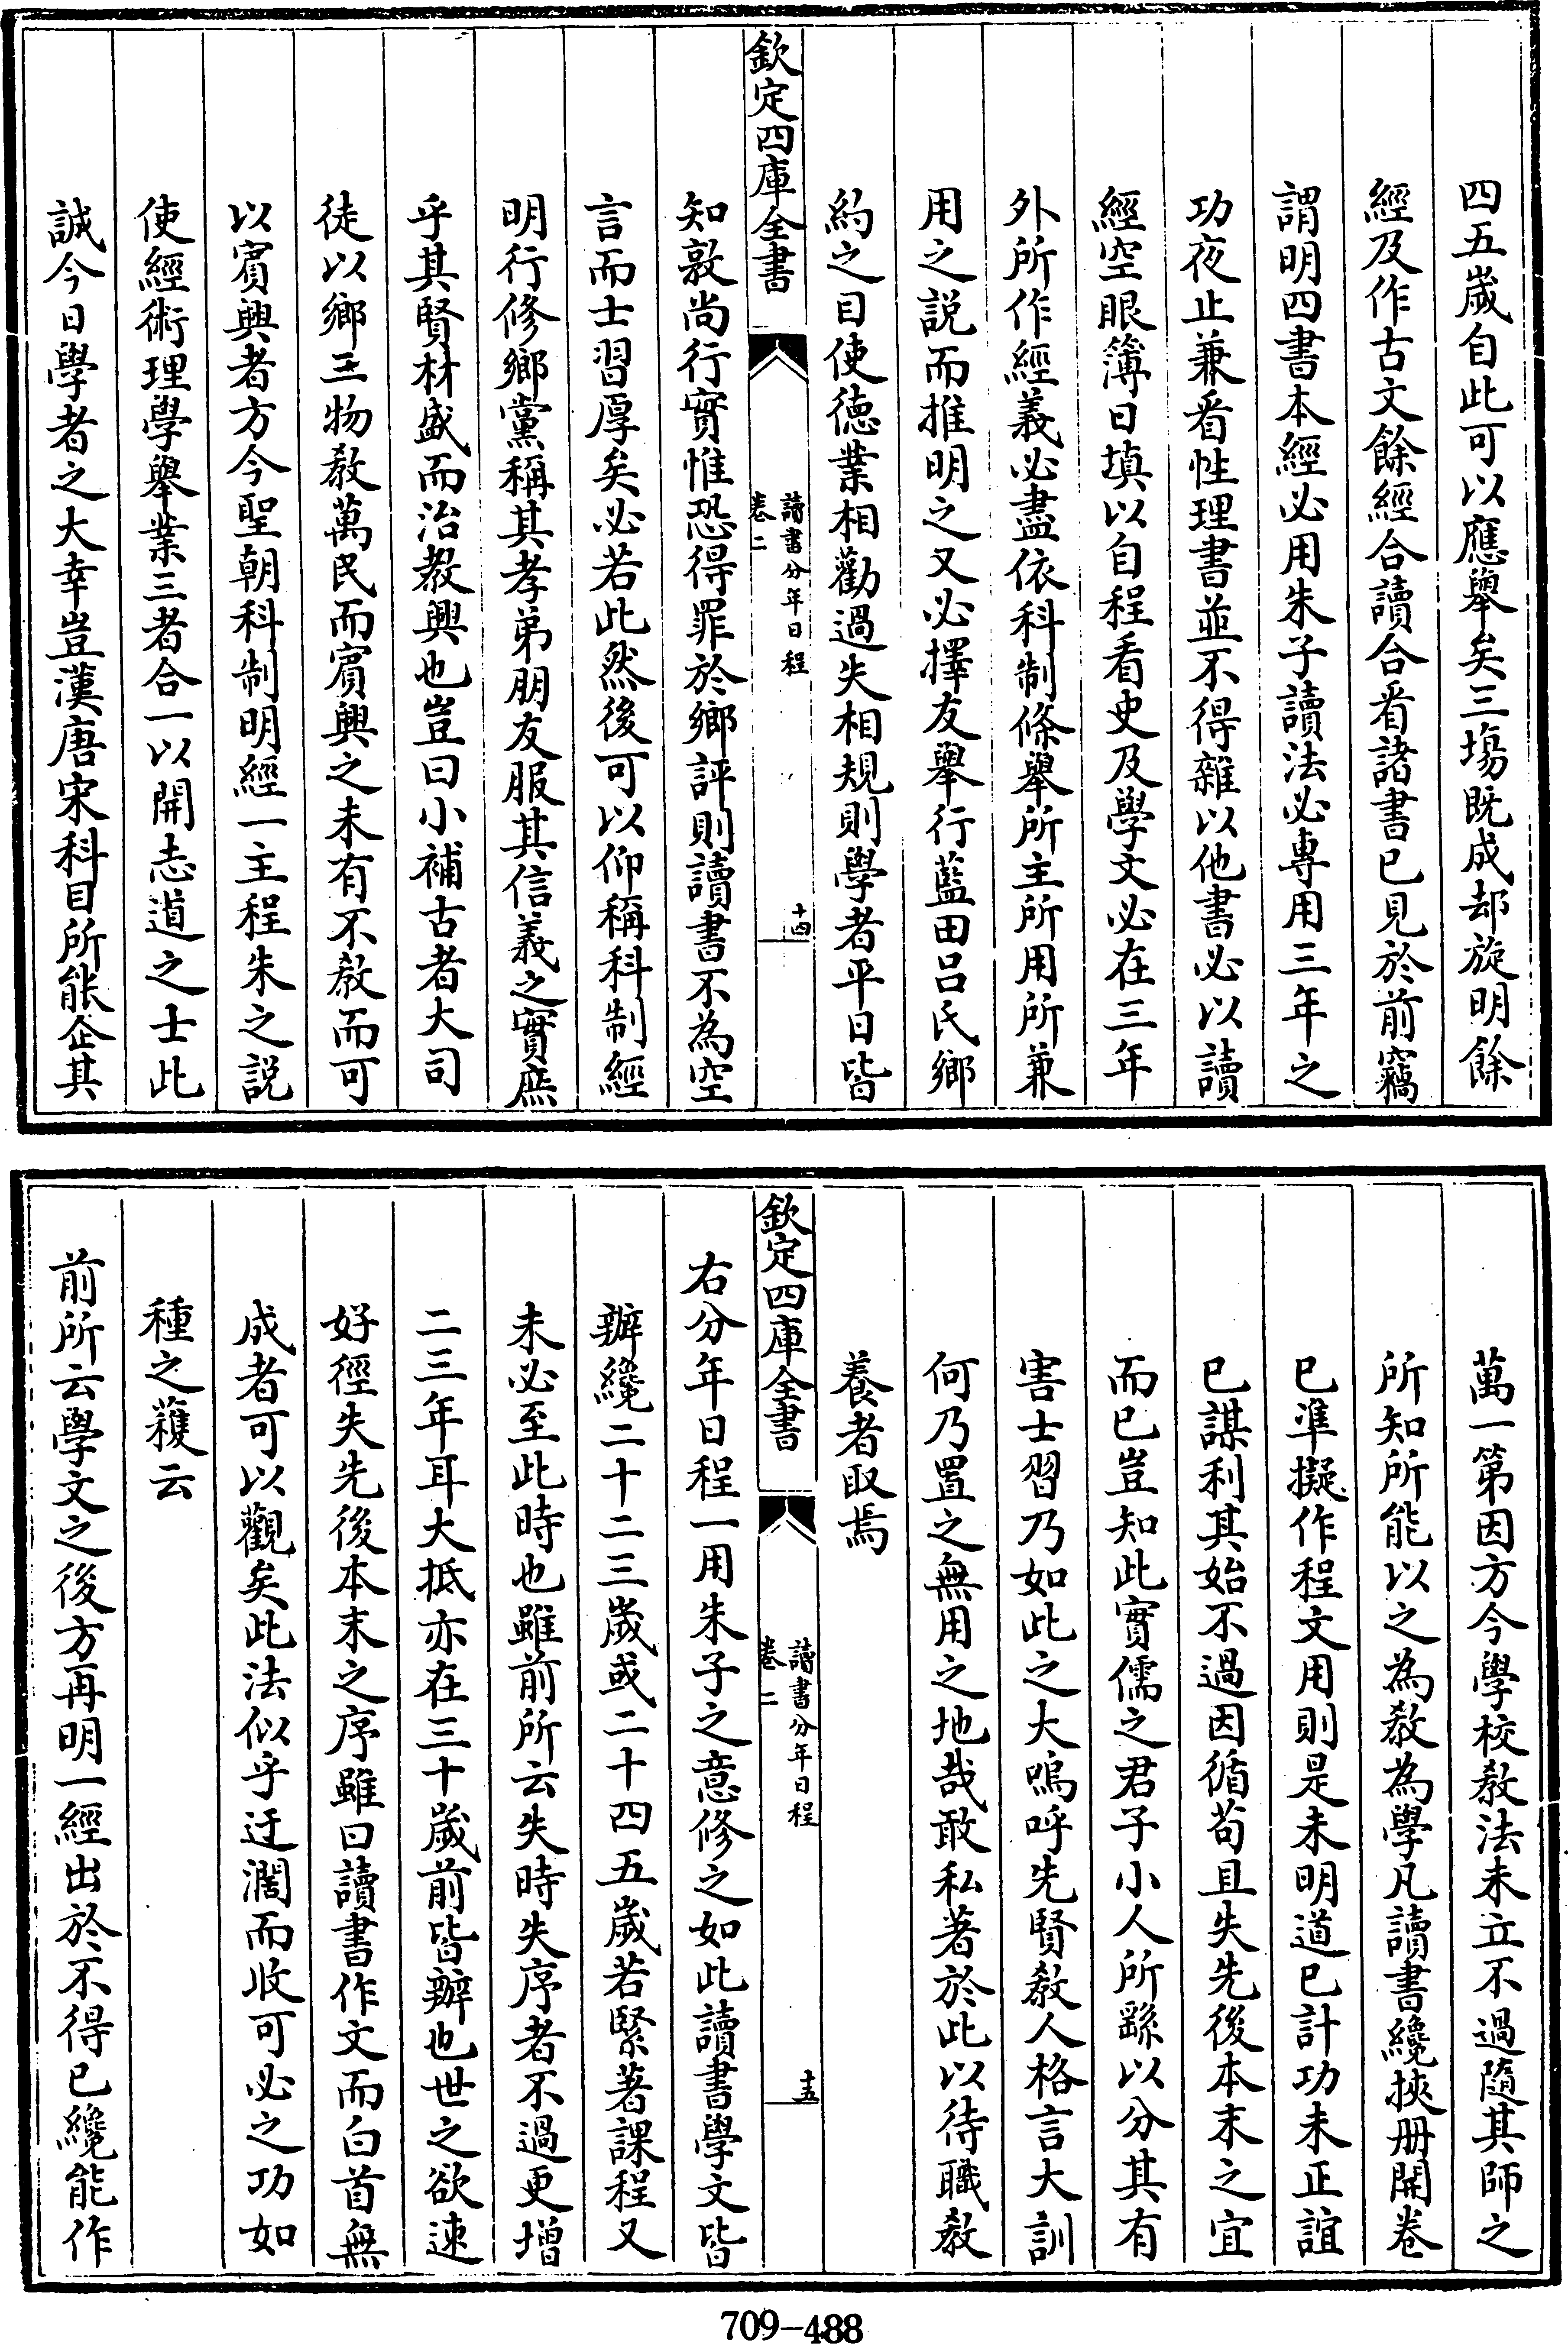 四五嵗自此可以應舉矣三塲既成却旋明餘
經及作古文餘經合讀合㸔諸書已見於前竊
謂明四書本經必用朱子讀法必專用三年之
功夜止兼㸔性理書並不得雜以他書必以讀
經空眼簿日填以自程看史及學文必在三年
外所作經義必盡依科制條舉所主所用所兼
用之説而推明之又必擇友舉行藍田吕氏鄉
約之目使德業相勸過失相規則學者平日皆
欽定四庫全書
讀書分年日程
卷二
十四
知敦尚行實惟恐得罪於鄉評則讀書不為空
言而士習厚矣必若此然後可以仰稱科制經
明行修鄉黨稱其孝弟朋友服其信義之實庶
乎其賢材盛而治教興也豈曰小補古者大司
徒以鄉三物教萬民而賓興之未有不教而可
以賓興者方今聖朝科制明經一主程朱之説
使經術理學舉業三者合一以開志道之士此
誠今日學者之大幸豈漢唐宋科目所能企其
萬一第因方今學校教法未立不過隨其師之
所知所能以之為教為學凡讀書纔挾册開卷
已準擬作程文用則是未明道已計功未正誼
已謀利其始不過因循苟且失先後本末之宜
而已豈知此實儒之君子小人所繇以分其有
害士習乃如此之大嗚呼先賢教人格言大訓
何乃置之無用之地哉敢私著於此以待職教
養者取焉
欽定四庫全書
讀書分年日程
卷二
十五
右分年日程一用朱子之意修之如此讀書學文皆
辦纔二十二三嵗或二十四五嵗若緊著課程又
未必至此時也雖前所云失時失序者不過更增
二三年耳大抵亦在三十嵗前皆辦也世之欲速
好徑失先後本末之序雖曰讀書作文而白首無
成者可以觀矣此法似乎迂濶而收可必之功如
種之穫云
前所云學文之後方再明一經出於不得已纔能作
709-488